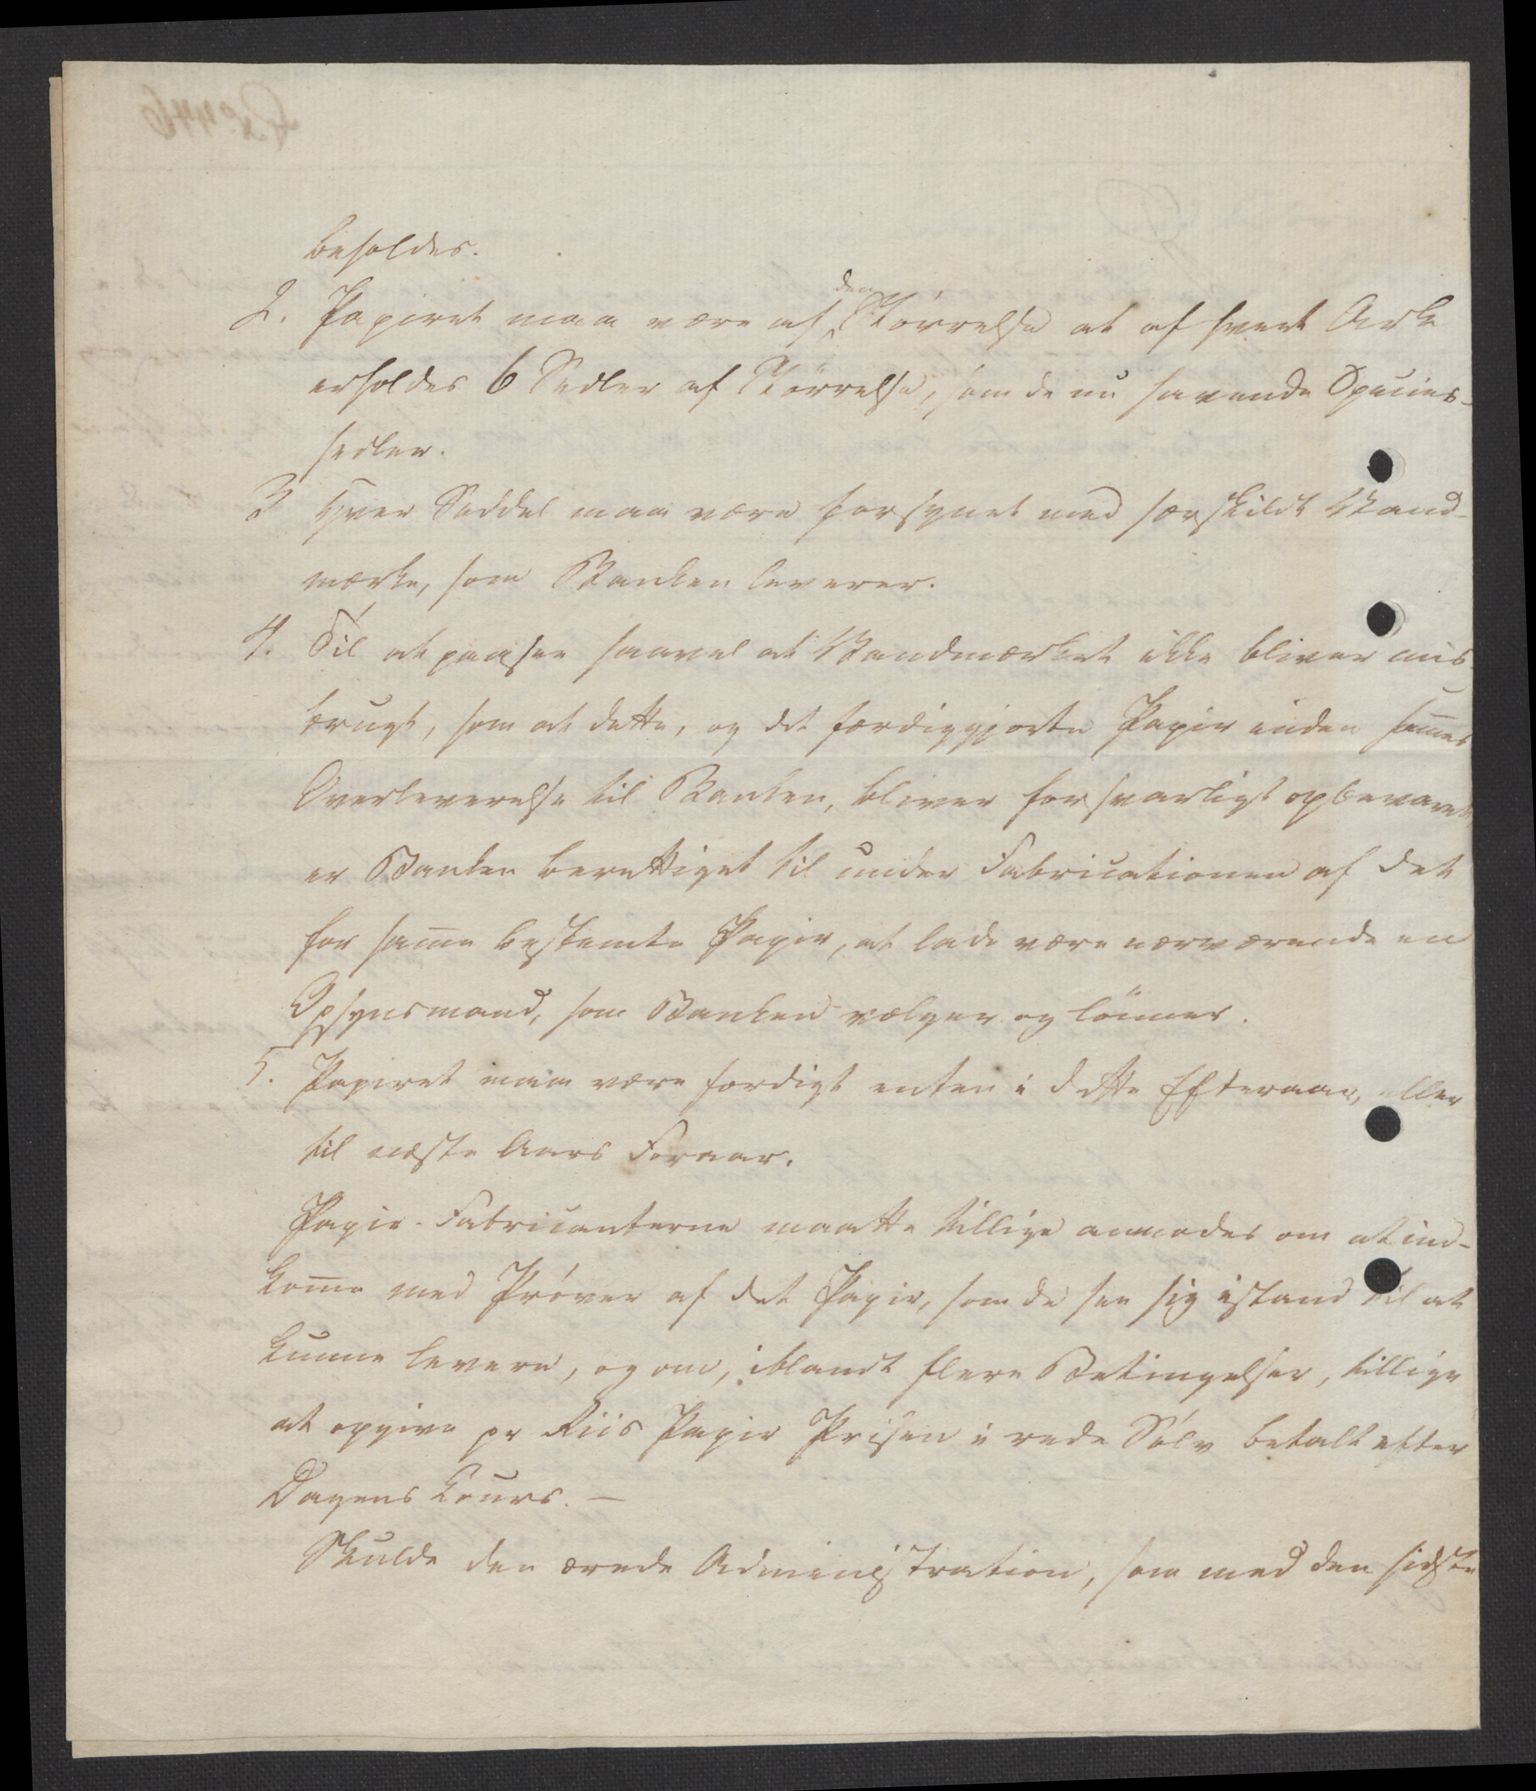 beholdes.
2. Papiret maa være af den Störrelse at af hvert Ark
erholdes 6 Sedler af Störrelse, som de nu havende Species-
sedler.
3 Hver Seddel maa være forsynet med særskildt Vand-
mærke, som Banken leverer.
4. Til at paasee saavel at Vandmærket ikke bliver mis-
brugt, som at dette, og det færdiggjorte Papir inden sam̅es
Overleverelse til Banken, bliver forsvarligt opbevaret,
er Banken berettiget til under Fabricationen af det
for sam̅e bestemte Papir, at lade være nærværende en
Opsynsmand, som Banken vælger og lönner.
5. Papiret maa være færdigt enten i dette Efteraar, eller
til næste Aars Foraar.
Papir-Fabricanterne maatte tillige anmodes om at ind-
kom̅e med Pröver af det Papir, som de see sig istand til at
kunne levere, og om, iblandt flere Betingelser, tillige
at opgive pr Riis Papir Prisen i rede Sölv betalt efter
Dagens Cours. —
Skulde den ærede Administration, som med den sidste